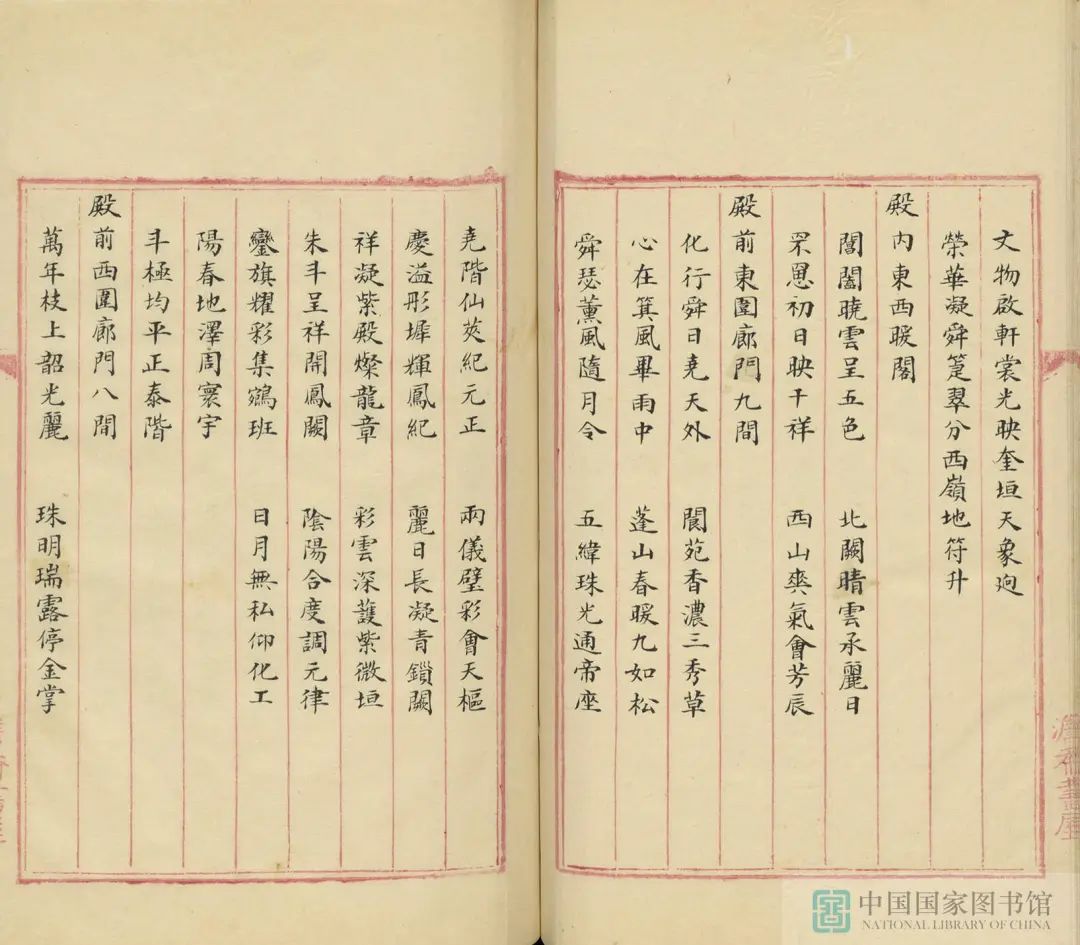 文物啟軒裳光映奎垣天象逈
榮華凝舜筵翠分西嶺地符升
殿內東西暖閣
閶闔曉雲呈五色 北闕晴雲承麗日
罘罳初日映千祥 西山爽氣會芳辰
殿前東圍廊門九間
化行舜日堯天外 閬苑香濃三秀草
心在箕風畢雨中 蓬山春暖九如松
舜瑟薰風隨月令 五緯珠光通帝座
堯階仙莢紀元正 兩儀璧彩會天樞
慶溢彤墀輝鳳紀 麗日長凝青鎖闥
祥凝紫殿燦龍章 彩雲深護紫微垣
朱斗呈祥開鳳闕 陰陽合度調元律
鑾旗耀彩集鵷班 日月無私仰化工
陽春地澤周寰宇
斗極均平正泰階
殿前西圍廊門八間
萬年枝上韶光麗 珠明瑞露停金掌
中国国家图书馆
NATIONAL LIBRARY OF CHINA